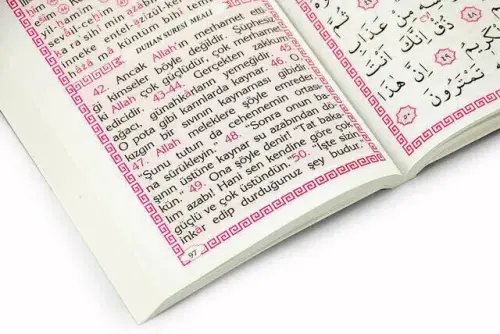 yil-hamim
seval-ceĥim
kara sihî min azâ
inneke entel-azîzül-kerim
hâzâ mâ küntüm bihî temterun
DUHAN SURESİ MEALİ
42. Ancak Allah'ın merhamet etti
ği kimseler böyle değildir. Şüphesi
ki Allah çok güçlüdür, çok merhamet
edicidir. 43-44. Gerçekten zakkum
ağacı, günahkârların yemeğidir.
O pota gibi karınlarda kaynar. 46.
kızgın bir sıvının kaynaması gibidir.
47. Allah meleklere şöyle emreder:
"Şunu tutun da cehennemin ortası-
na sürükleyin." 48. "Sonra onun ba-
şının üstüne kaynar su azabından dö-
kün." 49. Ona şöyle denir! "Tat baka-
lım azabı! Hani sen kendine göre çok
güçlü ve çok üstündün." 50. "İşte sizin
inkar edip durduğunuz şey budur."
97
مِنْ عَذَابِ
ذُقْ إِنَّكَ أَنْتَ
إِنَّ هٰذَا
تَمْتَرُونَ